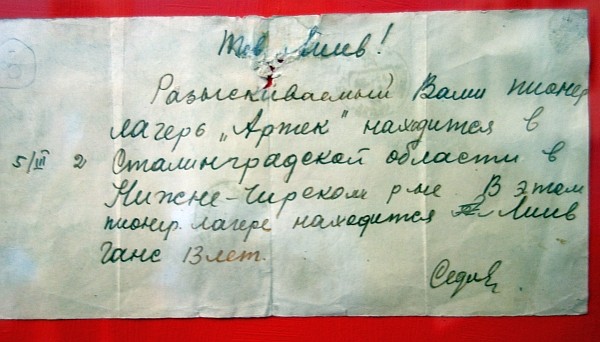 Тов. Лиив!
Разыскиваемый Вами пионер
лагерь „Артек" находится в
5/III 2 Сталинградской области в
Нижне-Чирском р-не В этом
пионер. лагере находится Лиив
Ганс 13 лет.